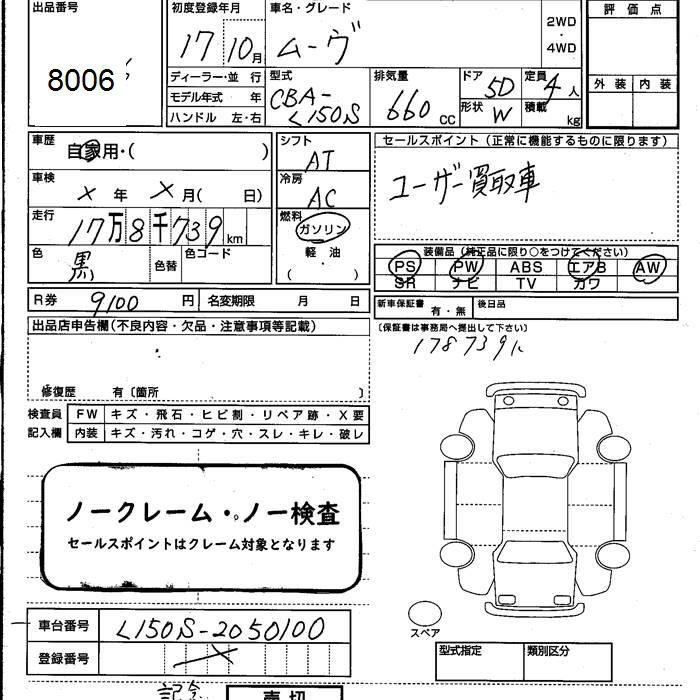 出品番号 初度登録年月 車名・グレード 2WD・4WD 評価点
8006 17 10月 ムーヴ
ディーラー・並行 型式 排気量 ドア 5D 定員 4人 外装 内装
モデル年式 年 CBA-L150S 660cc 形状 W 積載 kg
ハンドル 左・右
車歴 自家用・( ) シフト セールスポイント(正常に機能するものに限ります)
AT
車検 × 年 ×月( 日) 冷房 AC ユーザー買取車
走行 17万8千739km 燃料 ガソリン
色 黒 色替 色コード 軽油 装備品(純正品に限り○をつけてください)
(・) PS PW ABS エアB AW
SR ナビ TV カワ
R券 9100円 名変期限 月 日 新車保証書 有・無 後日品
出品店申告欄(不良内容・欠品・注意事項等記載) (保証書は事務局へ提出して下さい)
178739k
修復歴 有〔箇所 〕
検査員 FW キズ・飛石・ヒビ割・リペア跡・X要
記入欄 内装 キズ・汚れ・コゲ・穴・スレ・キレ・破レ
ノークレーム・ノー検査
セールスポイントはクレーム対象となります
車台番号 L150S-2050100 スペア
登録番号 × 型式指定 類別区分